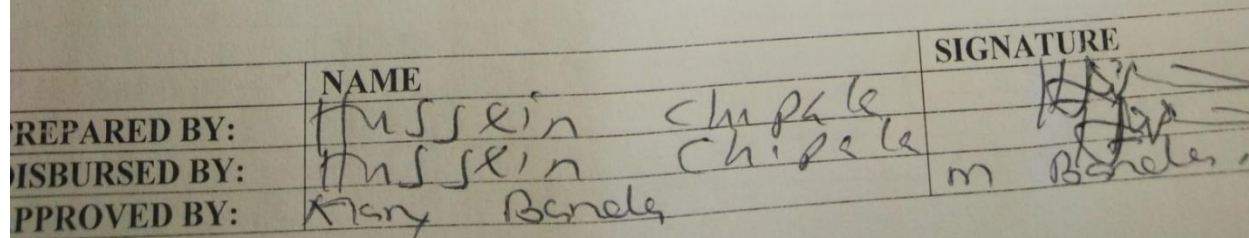 NAME SIGNATURE
PREPARED BY: Hussein Chipala
DISBURSED BY: Hussein Chipala
APPROVED BY: Mary Banda m Banda